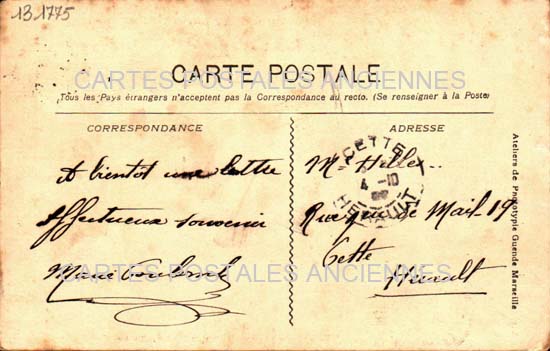 13.1775
CARTE POSTALE
CARTES POSTALES ANCIENNES
Tous les Pays étrangers n'acceptent pas la Correspondance au recto. (Se renseigner à la Poste)
CORRESPONDANCE
ADRESSE
A bientôt une lettre
affectueux souvenir
Marie
CETTE
4 -10
HERAULT
Rue
de Mail 19
Cette
Hérault
CARTES POSTALES ANCIENNES
Ateliers de Phototypie Guende Marseille